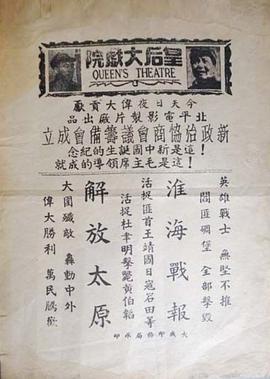 皇后大戲院
QUEEN'S THEATRE
今天日夜偉大貢獻
北平電影製片廠出品
新政治協商會議籌備會成立
這是新中國誕生的紀念！
這是毛主席領導的成就！
英雄戰士 無堅不摧
閻匪碉堡 全部擊毀
淮海戰報
活捉匪首王靖國日寇石田等
活捉杜聿明擊斃黄伯韜
解放太原
大圍殲敵 轟動中外
偉大勝利 萬民騰歡
大成印務局承印